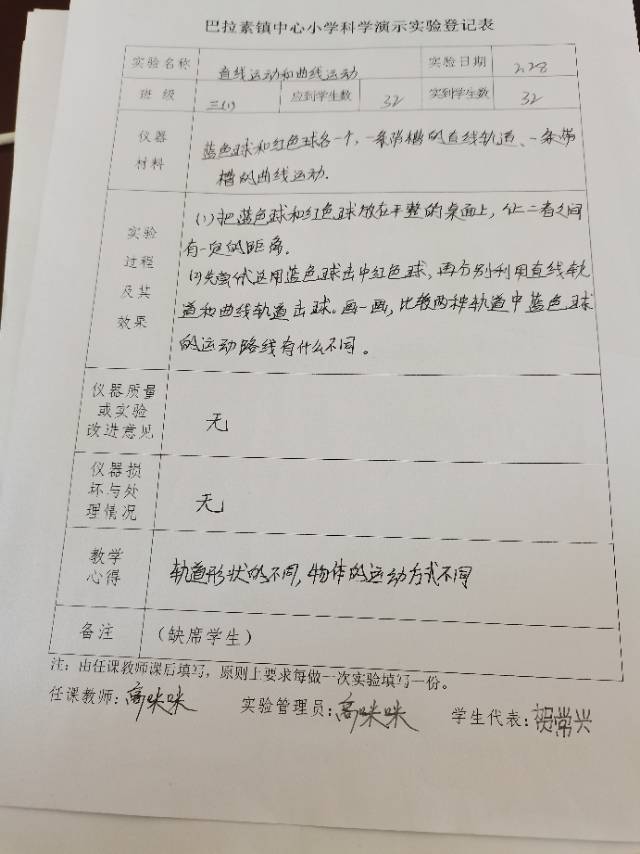 巴拉素镇中心小学科学演示实验登记表
实验名称 直线运动和曲线运动 实验日期 2.28
班级 三(1) 应到学生数 32 实到学生数 32
仪器材料 蓝色球和红色球各一个,一条带槽的直线轨道、一条带
槽的曲线运动.
实验过程及其效果 (1)把蓝色球和红色球放在平整的桌面上,让二者之间
有一定的距离.
用蓝色球击中红色球,再分别利用直线轨
道和曲线轨道击球。画一画,比较两种轨道中蓝色球
的运动路线有什么不同。
仪器质量或实验改进意见 无
仪器损坏与处理情况 无
教学心得 轨道形状的不同,物体的运动方式不同
备注 (缺席学生)
注:由任课教师课后填写,原则上要求每做一次实验填写一份。
任课教师:高咪咪 实验管理员:高咪咪 学生代表:常兴